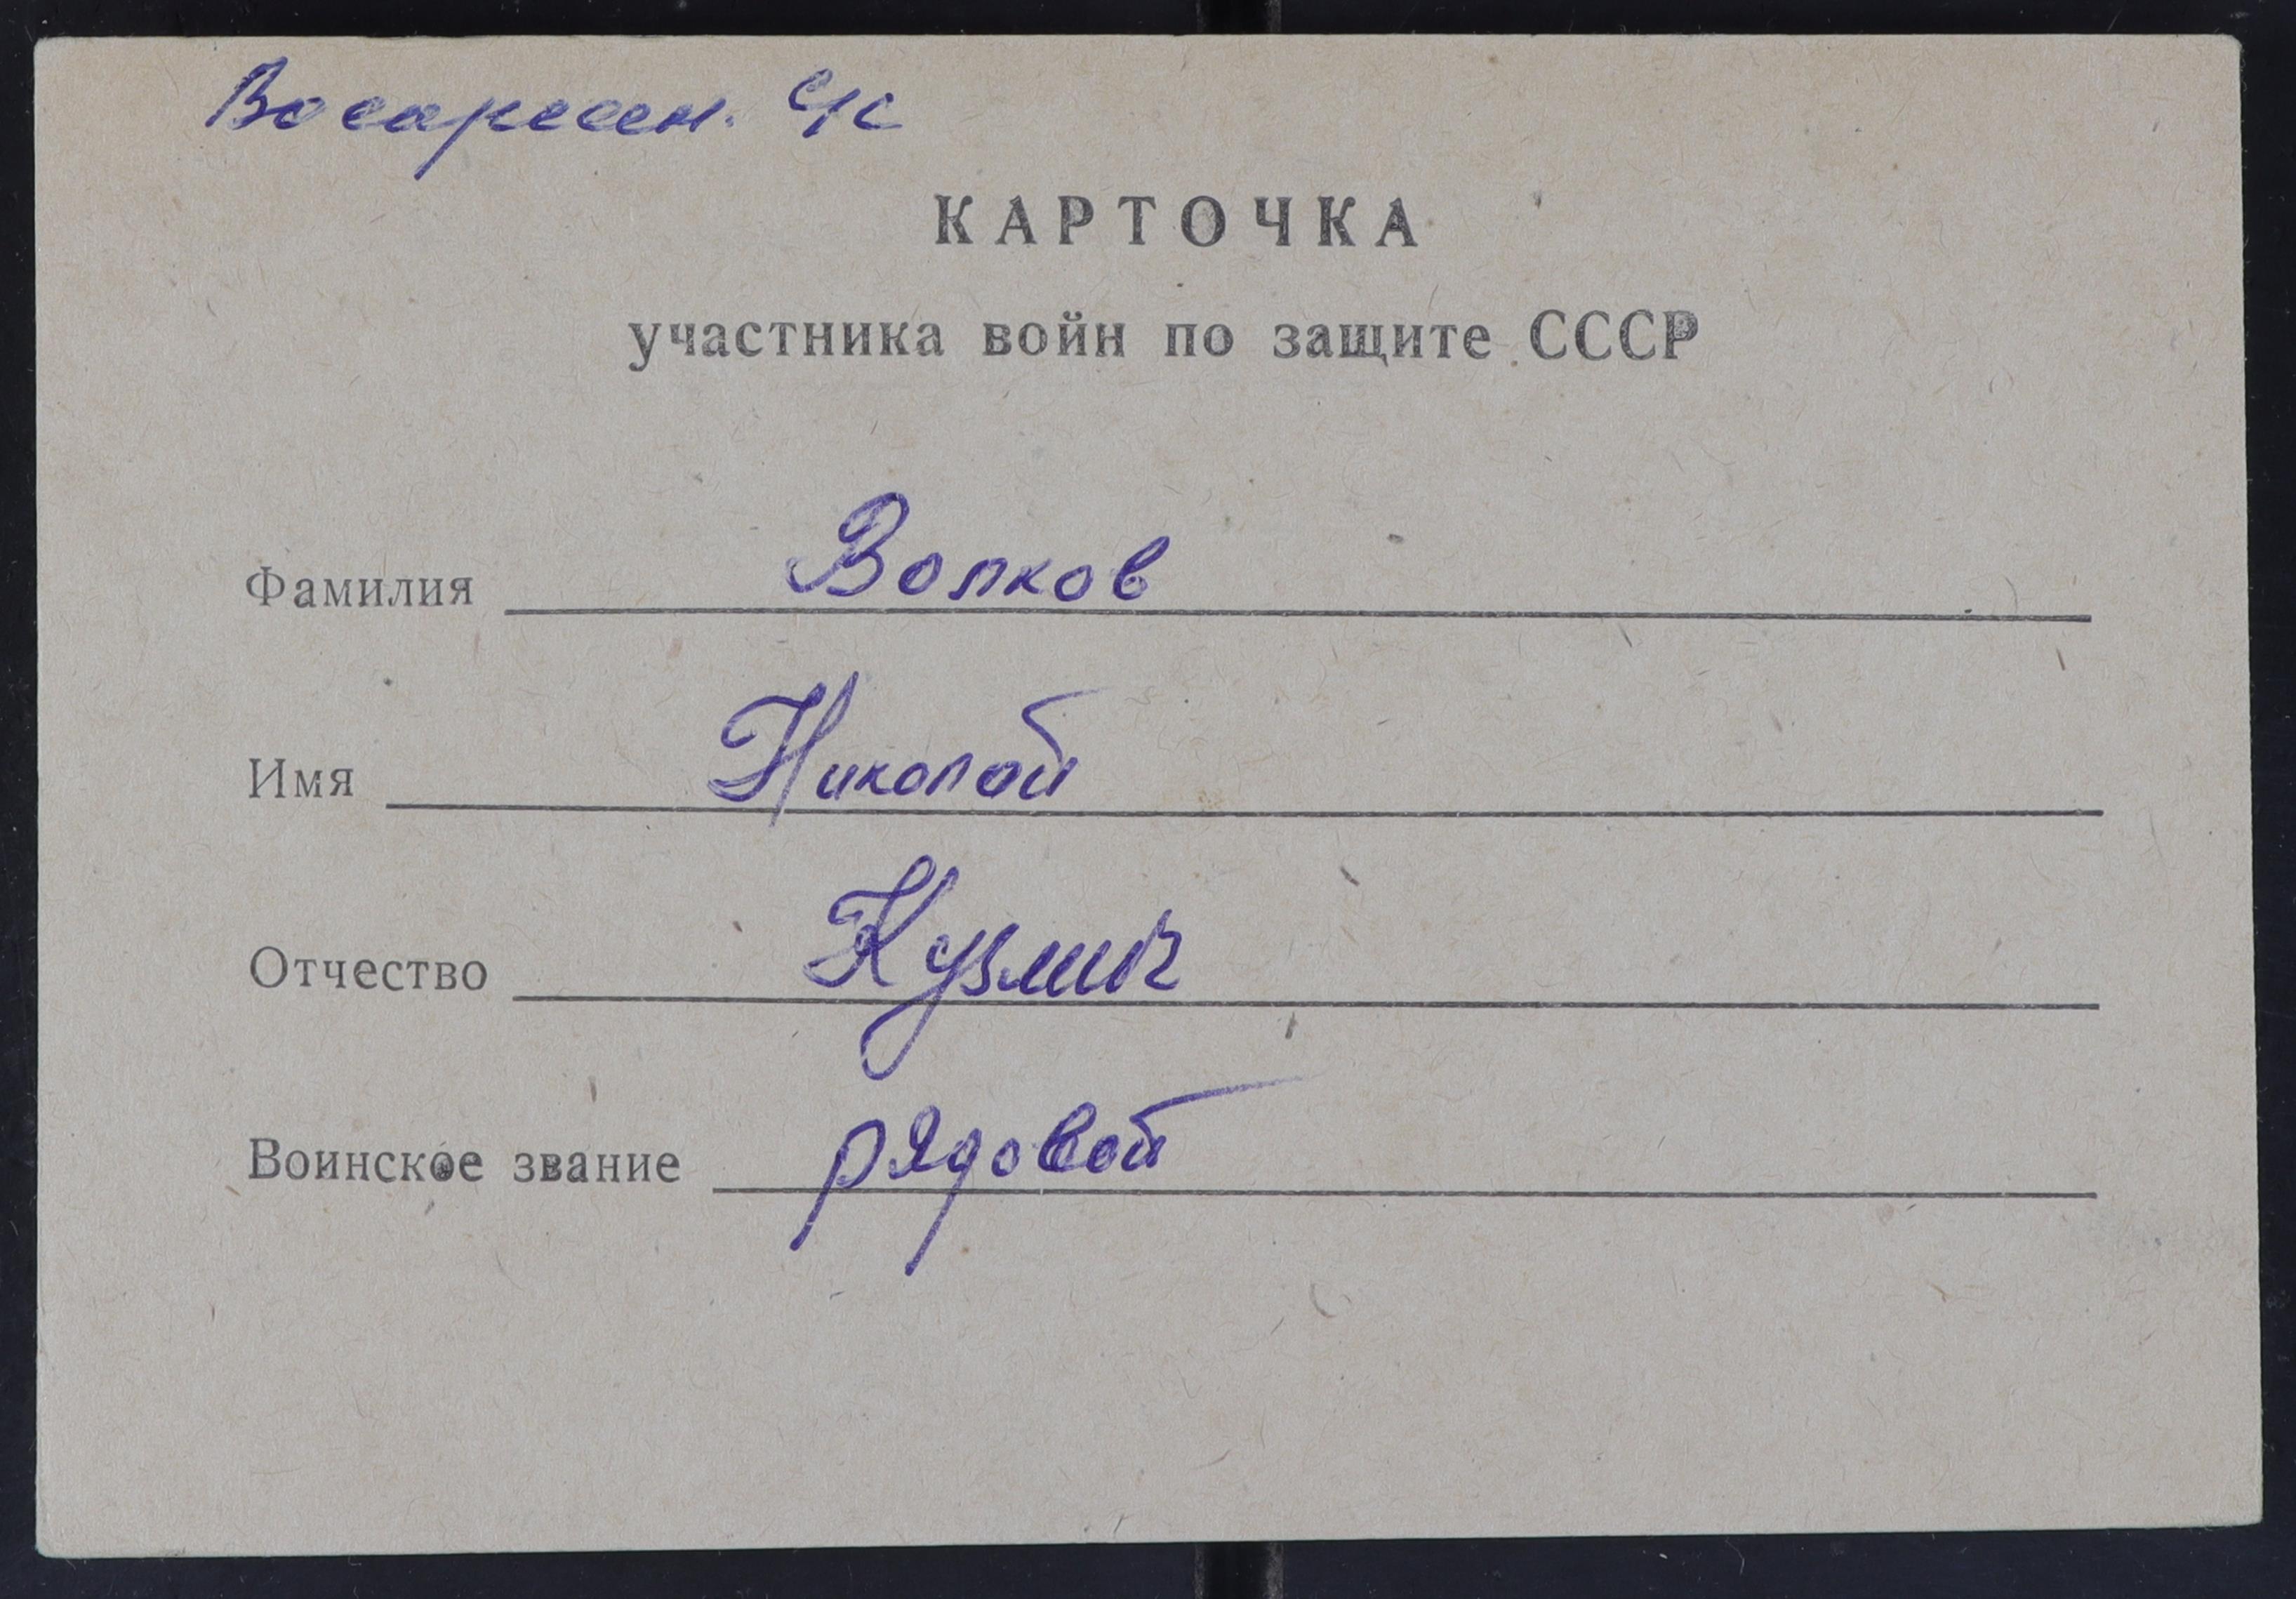 Воскресен. с/с
КАРТОЧКА
участника войн по защите СССР
Фамилия Волков
Имя Николай
Отчество Кузмич
Воинское звание рядовой